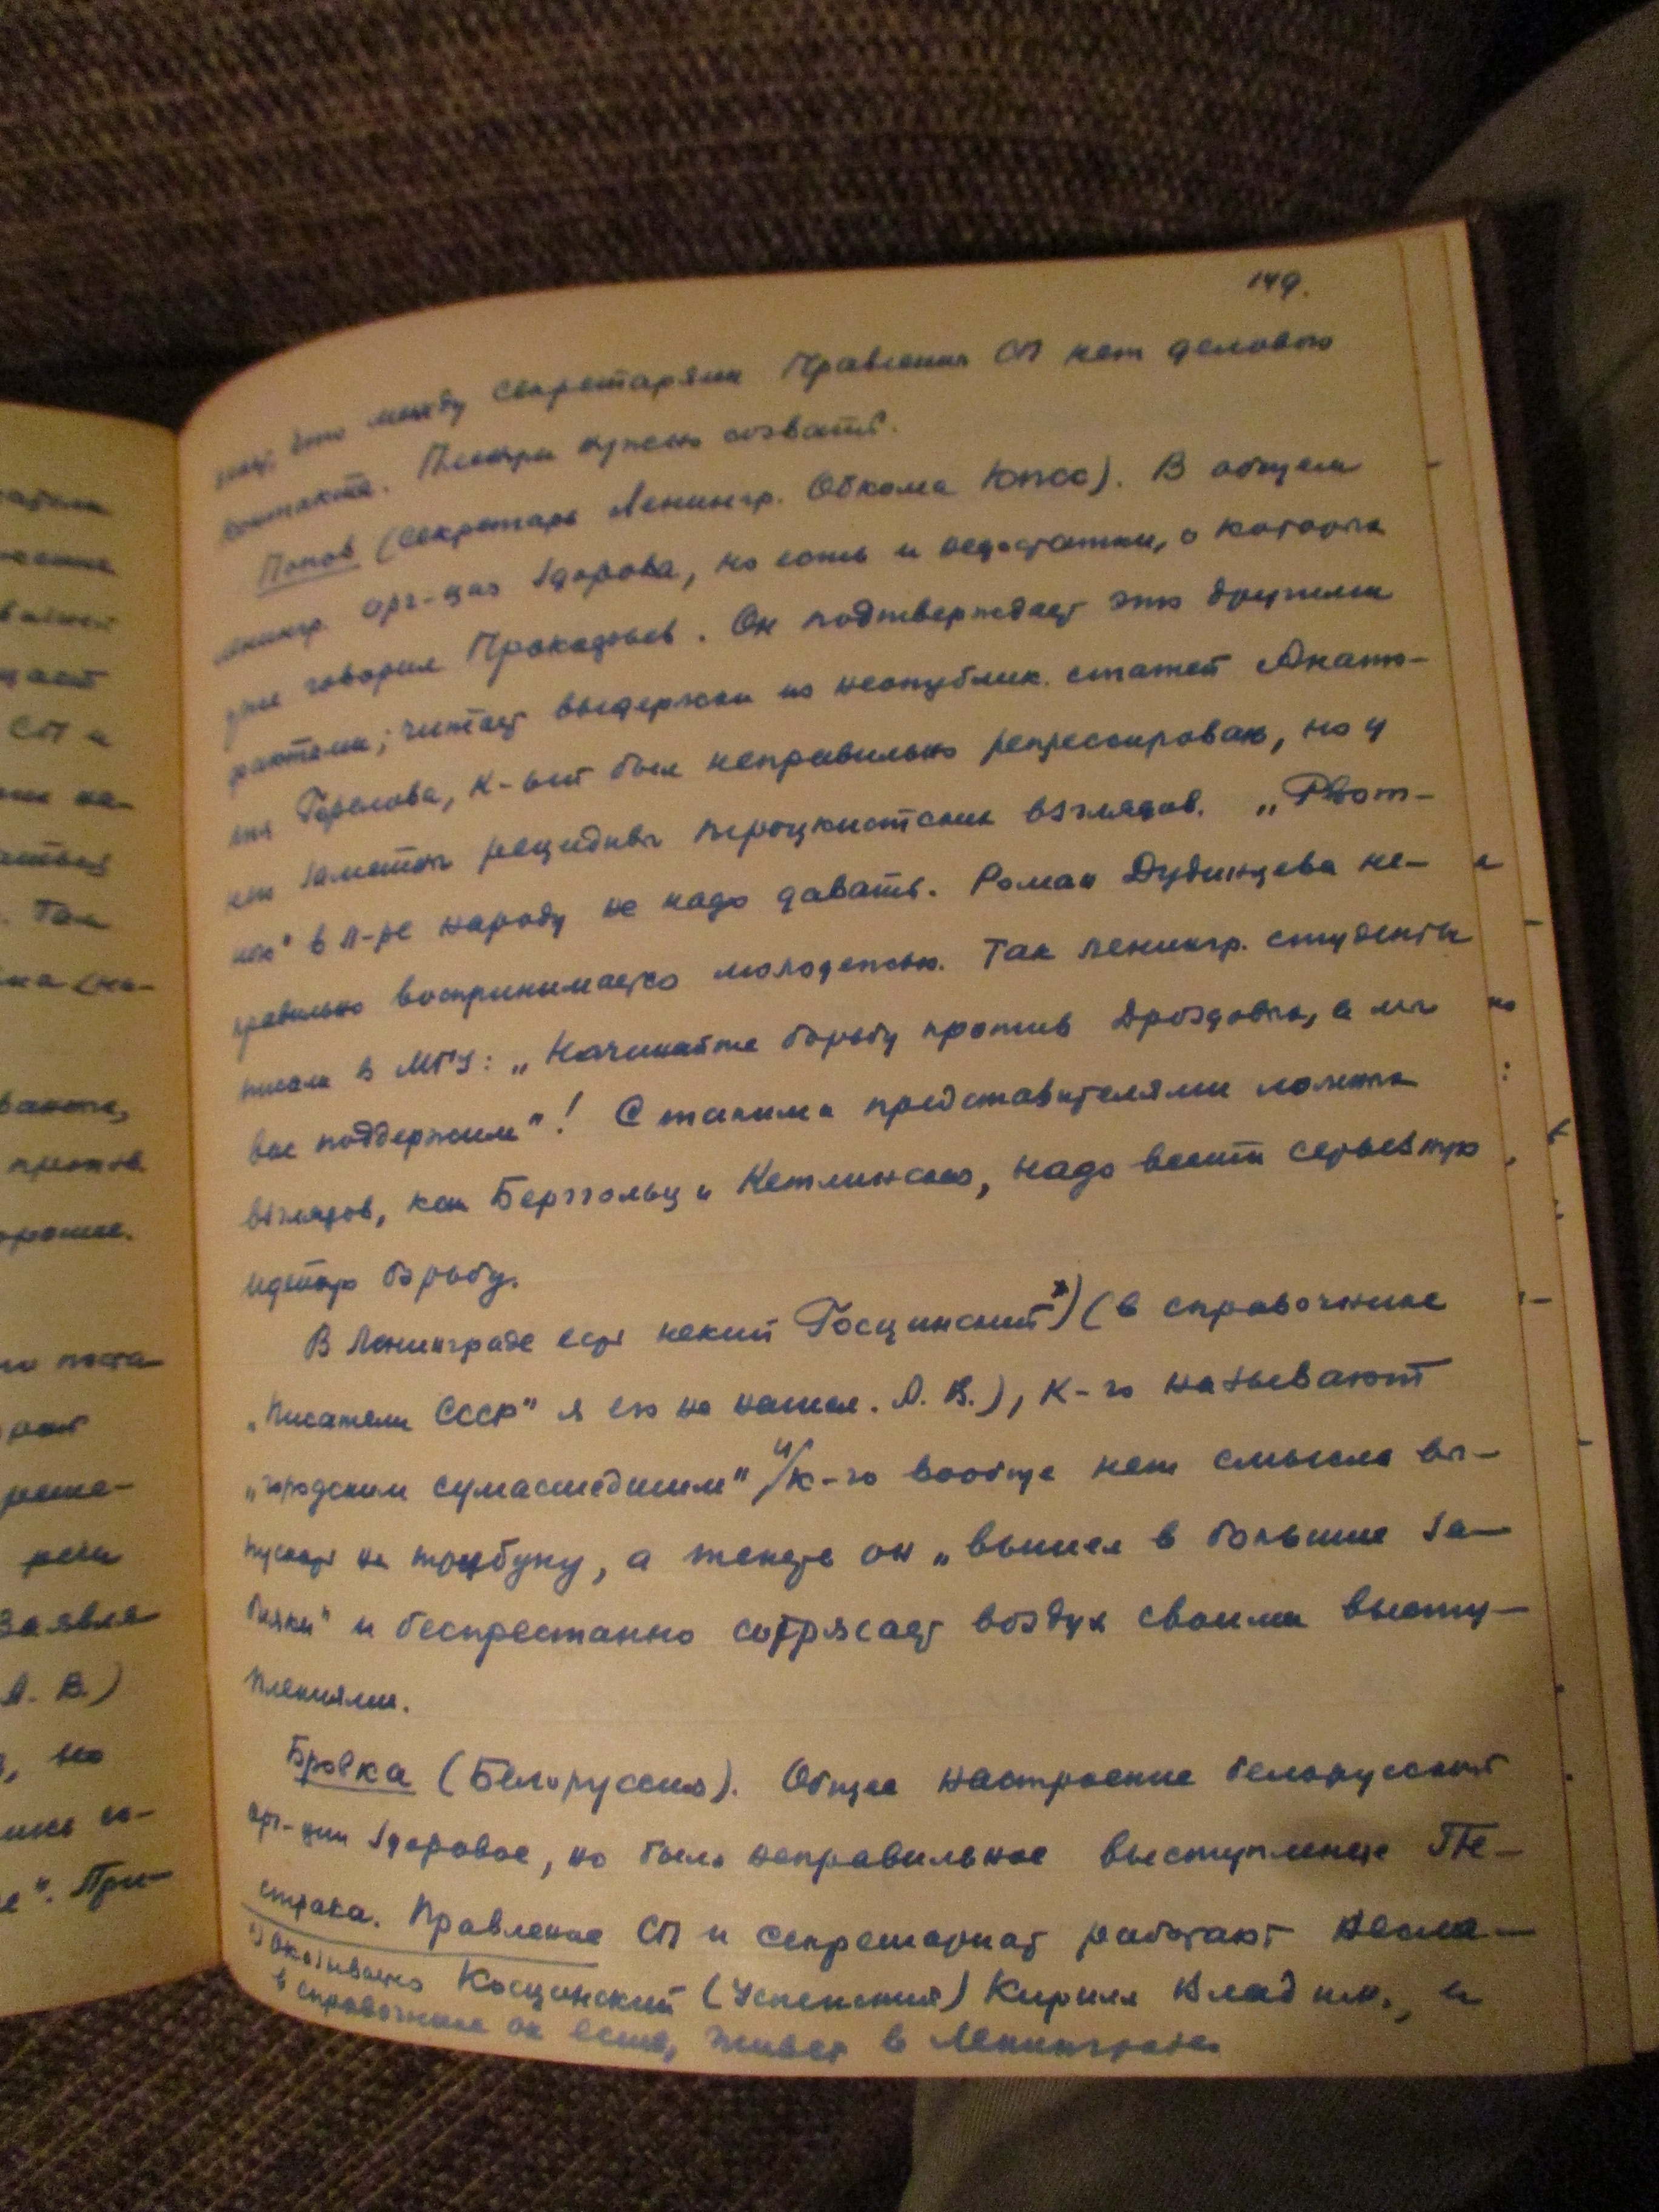 149.
что между секретарями Правления СП нет делового
контакта. Пленум нужно созвать.
Попов (секретарь Ленингр. Обкома КПСС). В общем
ленингр. орг-ция здорова, но есть и недостатки, о которых
уже говорил Прокофьев. Он подтверждает это другими
фактами; читает выдержки из неопублик. статей Анато-
лия Горелова, к-ый был неправильно репрессирован, но у
него заметны рецидивы троцкистских взглядов. „Рвот-
ное" в л-ре народу не надо давать. Роман Дудинцева не-
правильно воспринимается молодежью. Так ленингр. студенты
писали в МГУ: „Начинайте борьбу против Дроздовых, а мы
вас поддержим"! С такими представителями ложных
взглядов, как Берггольц и Кетлинская, надо вести серьезную
идейную борьбу.
В Ленинграде есть некий Госцинский*) (в справочнике
„Писатели СССР" я его не нашел. А. В.), к-го называют
„городским сумасшедшим" и к-го вообще нет смысла вы-
пускать на трибуну, а теперь он „вышел в большие за-
бияки" и беспрестанно сотрясает воздух своими высту-
плениями.
Бровка (Белоруссия). Общее настроение белорусской
орг-ции здоровое, но было неправильное выступление Пе-
страка. Правление СП и секретариат работают несла-
*) Оказывается Косцинский (Успенский) Кирилл Владим., и
в справочнике он есть, живет в Ленинграде.
СП и
Так
А. В.)
, но
". При-